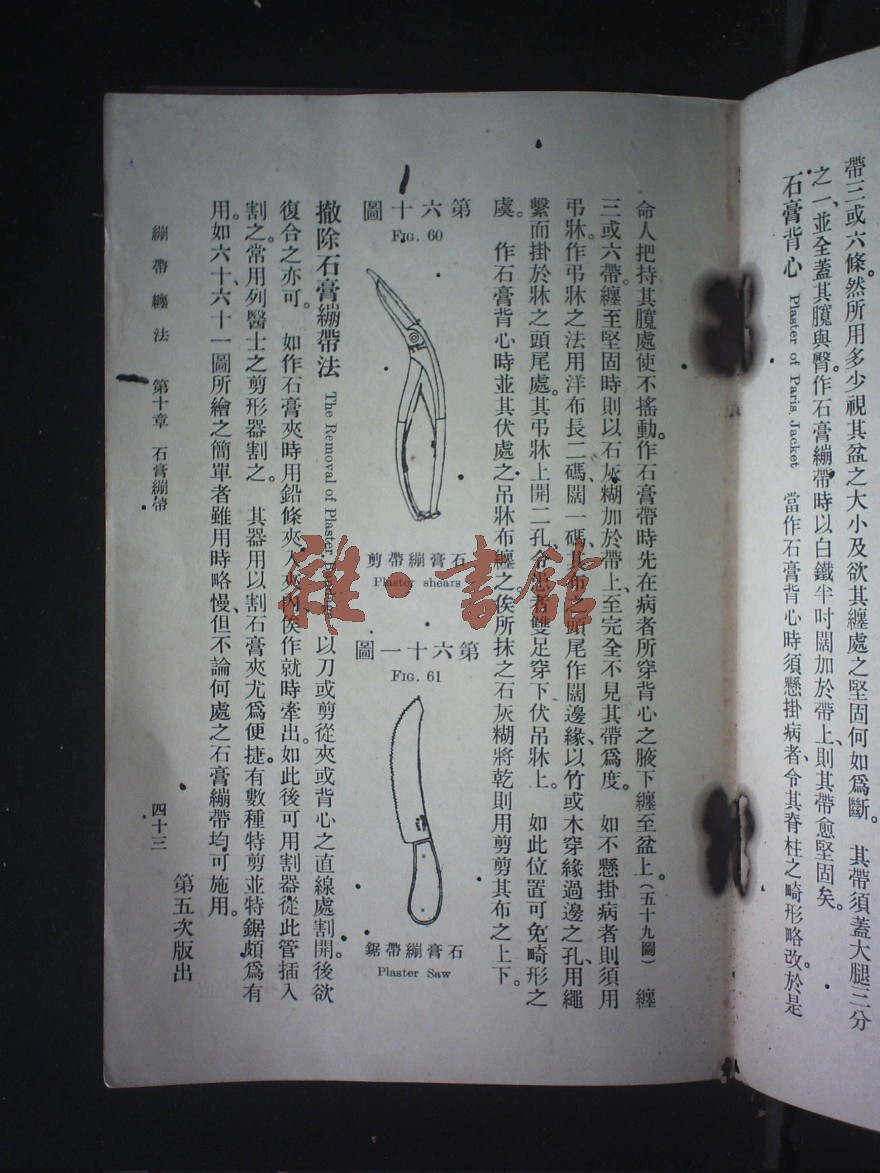 帶三或六條然所用多少視其盆之大小及欲其纏處之堅固何如爲斷。 其帶須蓋大腿三分
之一、並全蓋其髖與臀。作石膏繃帶時以白鐵半吋闊加於帶上、則其帶愈堅固矣。
石膏背心 Plaster of Paris Jacket 當作石膏背心時須懸掛病者、令其脊柱之畸形略改。於是
命人把持其髖處使不搖動。作石膏帶時先在病者所穿背心之腋下纏至盆上。(五十九圖) 纏
三或六帶。纏至堅固時則以石灰糊加於帶上、至完全不見其帶爲度。 如不懸掛病者、則須用
弔牀。作弔牀之法用洋布長二碼、闊一碼、其布之頭尾作闊邊緣、以竹或木穿緣過邊之孔、用繩
繫而掛於牀之頭尾處。其弔牀上開二孔、令患者雙足穿下伏吊牀上。 如此位置可免畸形之
虞。 作石膏背心時並其伏處之吊牀布纏之。俟所抹之石灰糊將乾、則用剪剪其布之上下。
第六十圖
FIG. 60
石膏繃帶剪
Plaster shears
第六十一圖
FIG. 61
石膏繃帶鋸
Plaster Saw
撤除石膏繃帶法 The Removal of Plaster 以刀或剪從夾或背心之直線處割開。後欲
復合之亦可。 如作石膏夾時用鉛條夾入夾內、俟作就時牽出。如此後可用割器從此管插入
割之。常用列醫士之剪形器割之。 其器用以割石膏夾尤爲便捷。有數種特剪並特鋸頗爲有
用。如六十、六十一圖所繪之簡單者雖用時略慢、但不論何處之石膏繃帶均可施用。
繃帶纏法 第十章 石膏繃帶 四十三
第五次版出
雜·書館